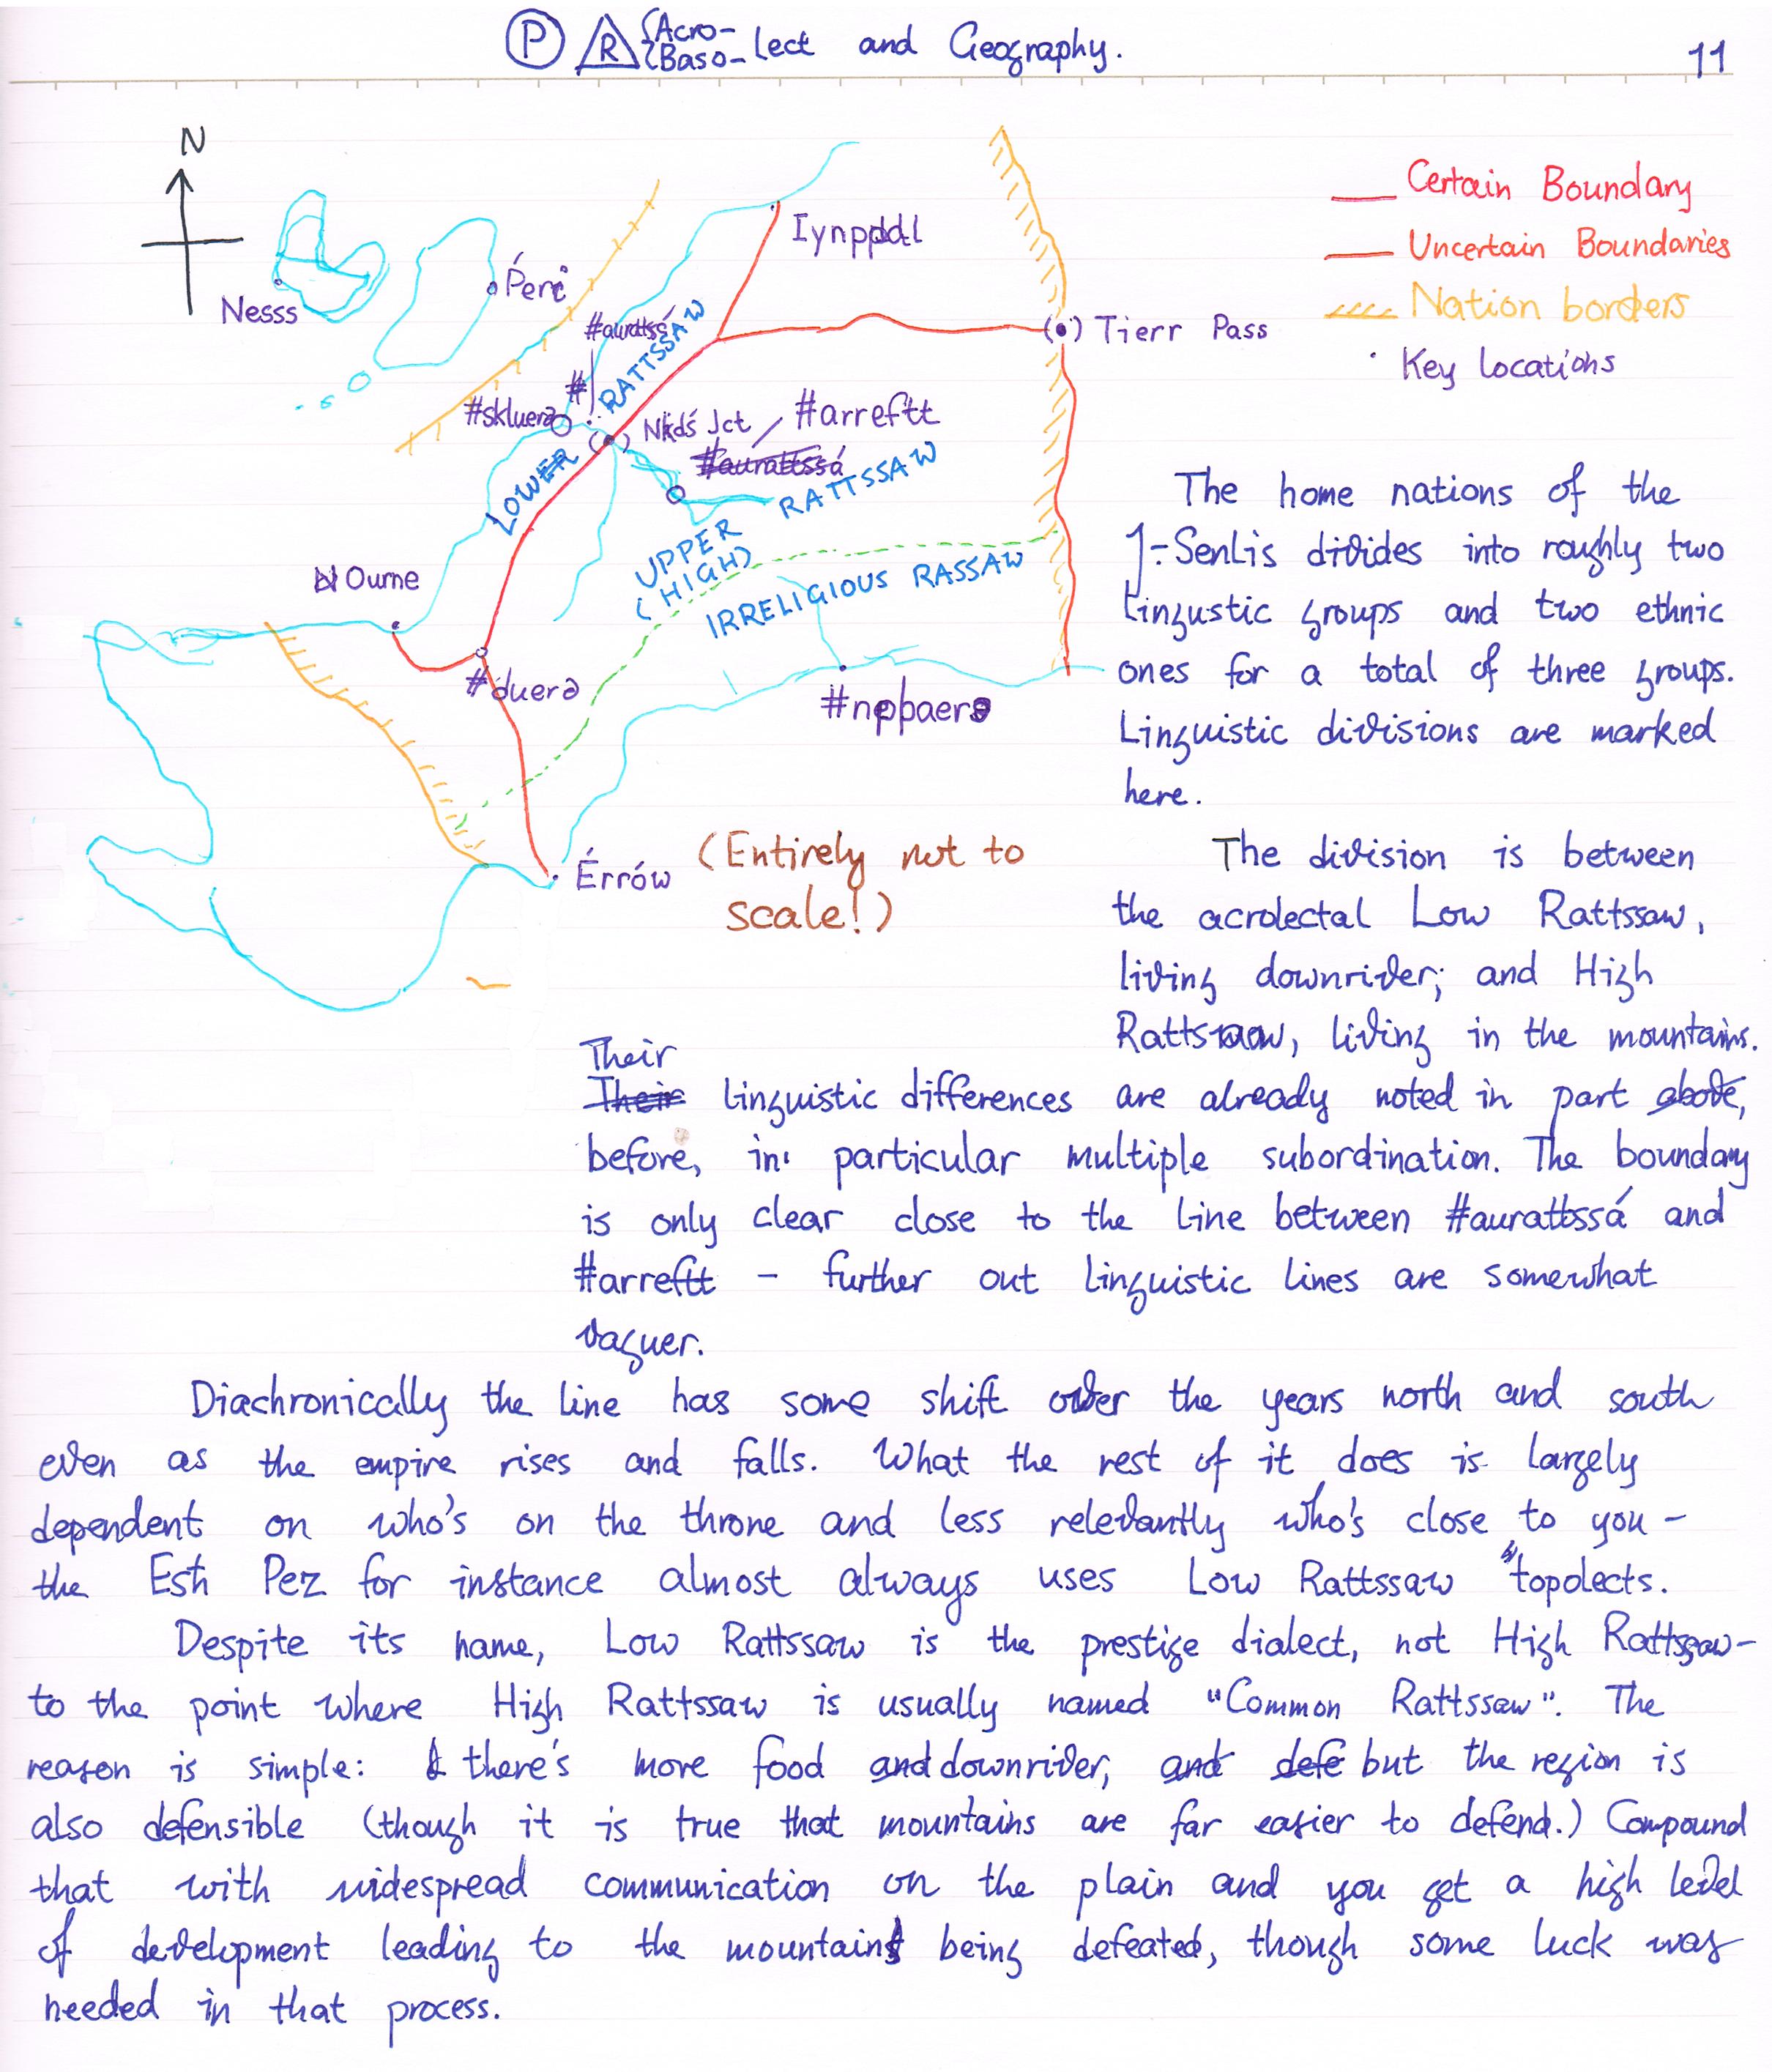 Ⓟ R {Acro-
{Baso- lect and Geography.
11
N
Iynppddl
Certain Boundary
Uncertain Boundaries
Nation borders
Key locations
Nesss
Péri
#aurattssá
Tierr Pass
#
#skluera
Nkdś Jct / #arreftt
#aurattssá
LOWER RATTSSAW
UPPER RATTSSAW
(HIGH)
IRRELIGIOUS RASSAW
Oume
#duera
#npbaere
Érrów
(Entirely not to
scale!)
The home nations of the
1-Senlis divides into roughly two
lingustic groups and two ethnic
ones for a total of three groups.
Linguistic divisions are marked
here.
The division is between
the acrolectal Low Rattssaw,
living downriver; and High
Rattssaw, living in the mountains.
Their
Their linguistic differences are already noted in part above,
before, in particular multiple subordination. The boundary
is only clear close to the line between #aurattssá and
#arreftt - further out linguistic lines are somewhat
vaguer.
Diachronically the line has some shift over the years north and south
even as the empire rises and falls. What the rest of it does is largely
dependent on who's on the throne and less relevantly who's close to you -
the Esh Pez for instance almost always uses Low Rattssaw topolects.
Despite its name, Low Rattssaw is the prestige dialect, not High Rattssaw-
to the point where High Rattssaw is usually named "Common Rattssaw". The
reason is simple: there's more food and downriver, and defe but the region is
also defensible (though it is true that mountains are far easier to defend.) Compound
that with widespread communication on the plain and you get a high level
of development leading to the mountains being defeated, though some luck was
needed in that process.